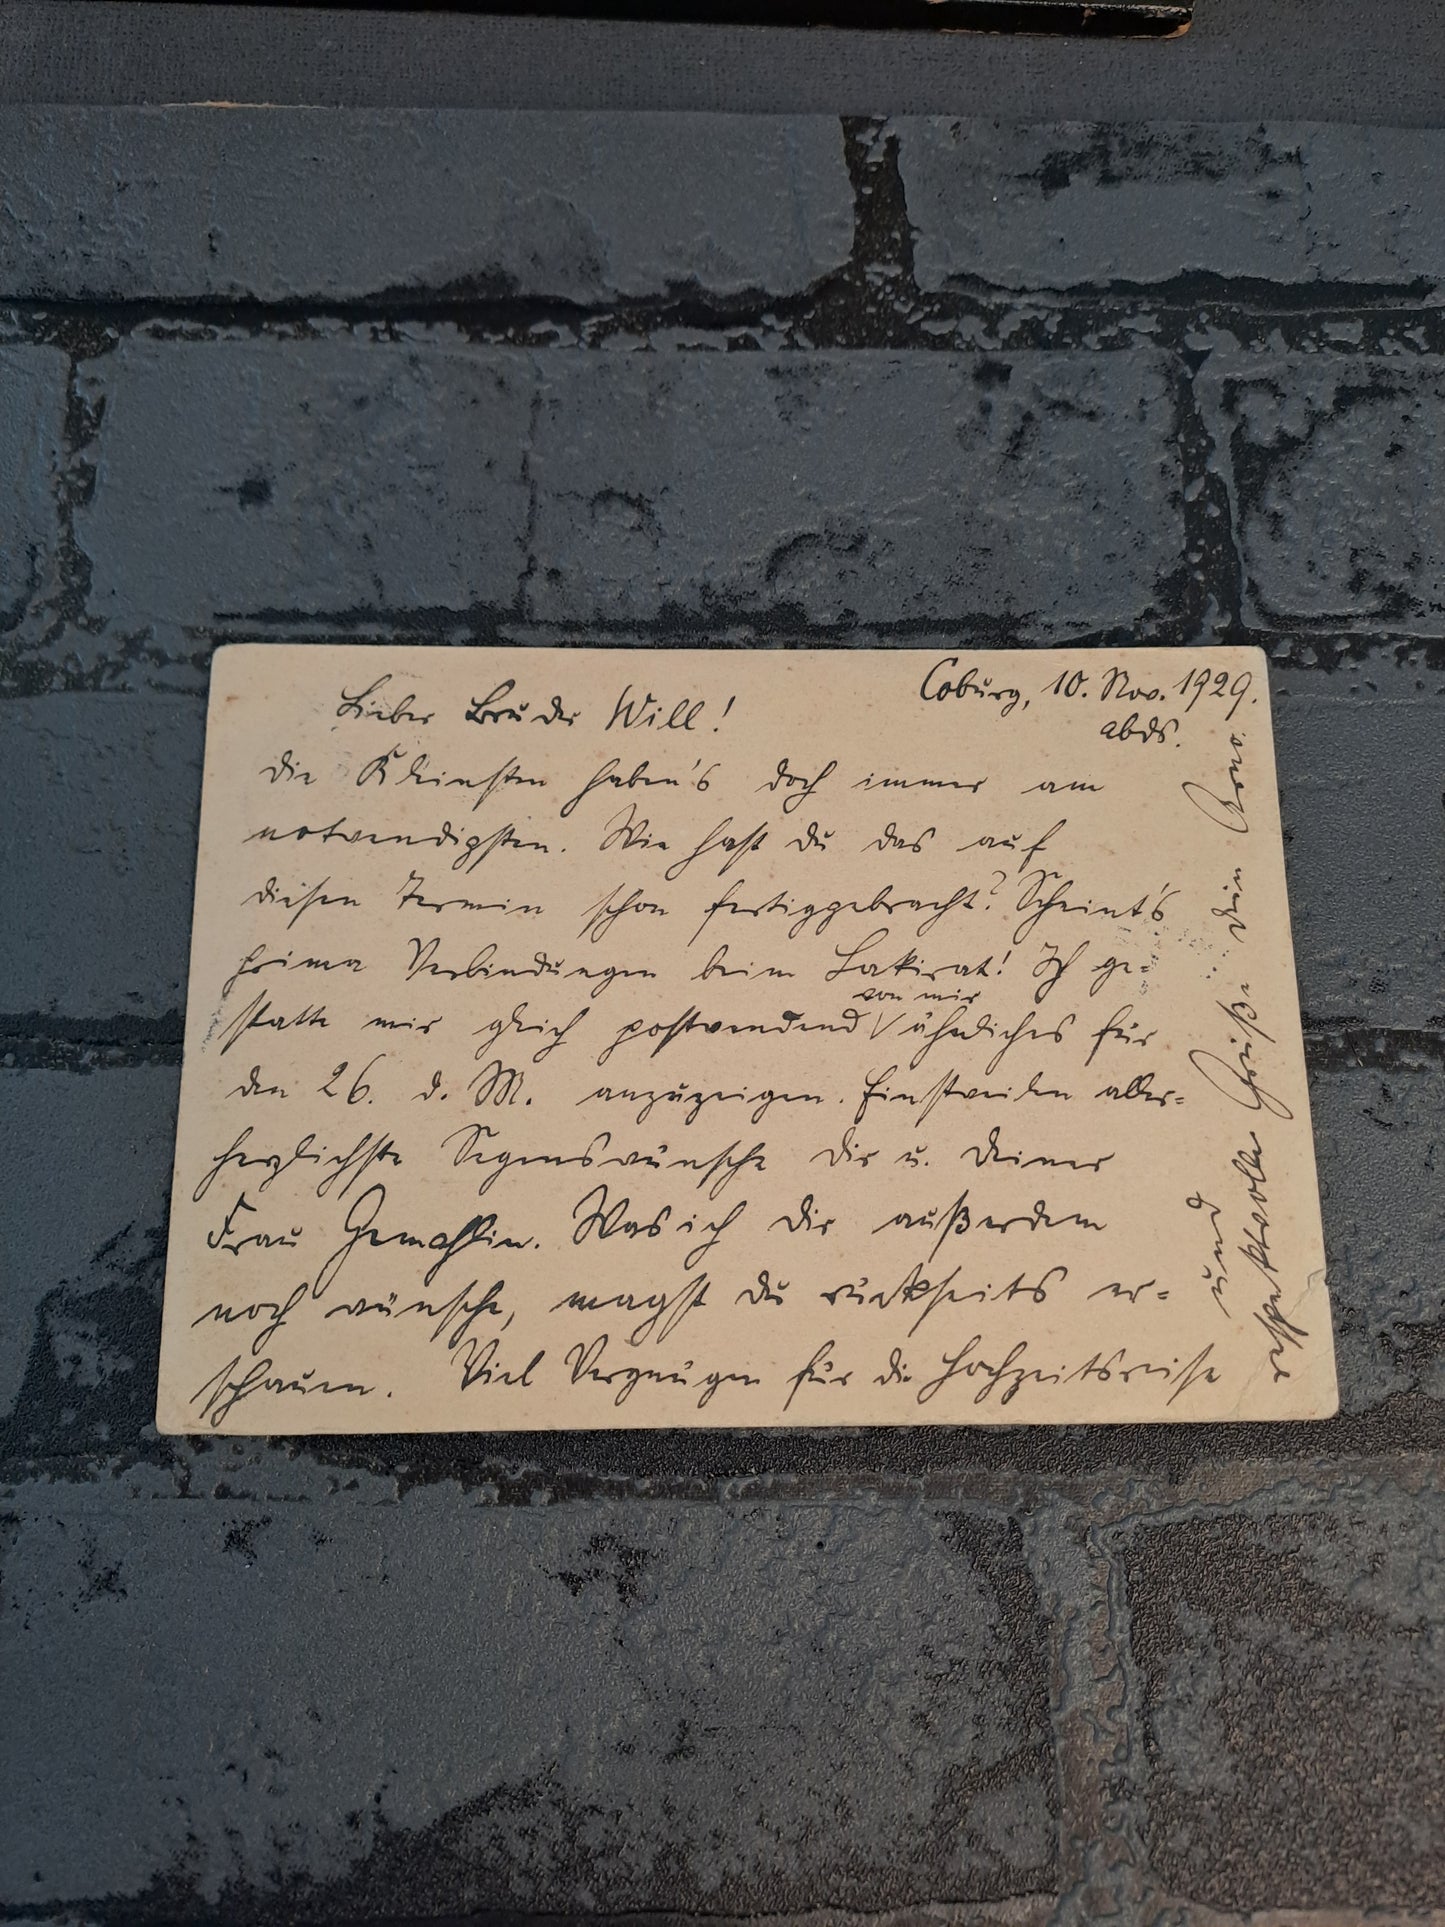 Coburg, 10. Nov. 1929.
abds.
Lieber Bruder Will!
Die Kleinsten haben's doch immer am
notwendigsten. Wie hast Du das auf
diesen Termin schon fertiggebracht? Scheint's
prima Verbindungen beim! Ich ge-
von mir
statte mir gleich postwendend ähnliches für
den 26. d. M. anzuzeigen. Einstweilen aller-
herzlichste Segenswünsche Dir u. Deiner
Frau Gemahlin. Was ich Dir außerdem
noch wünsche, magst Du rückseits er-
schauen. Viel Vergnügen für die Hochzeitsreise
und
respektvolle Grüße Dein Arno.